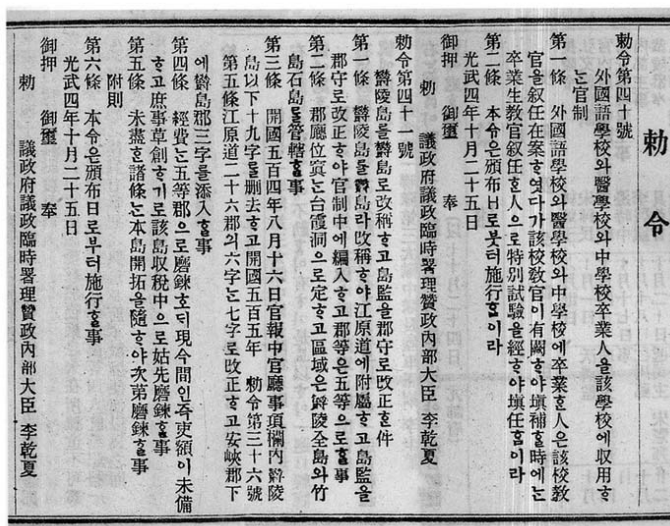 勅令
勅令第四十號
外國語學校와醫學校와中學校卒業人을該學校에收用ᄒᆞ
ᄂᆞᆫ官制
第一條　外國語學校와醫學校와中學校에卒業ᄒᆞᆫ人은該校敎
官을叙任在案ᄒᆞ엿다가該校敎官이有闕ᄒᆞ야塡補ᄒᆞᆯ時에ᄂᆞᆫ
卒業生敎官叙任ᄒᆞᆫ人으로特別試驗을經ᄒᆞ야塡任ᄒᆞᆷ이라
第二條　本令은頒布日로븟터施行ᄒᆞᆷ이라
光武四年十月二十五日
御押　御璽　奉
勅　議政府議政臨時署理贊政內部大臣 李乾夏
勅令第四十一號
鬱陵島를鬱島로改稱ᄒᆞ고島監을郡守로改正ᄒᆞᆫ件
第一條　鬱陵島를鬱島라改稱ᄒᆞ야江原道에附屬ᄒᆞ고島監을
郡守로改正ᄒᆞ야官制中에編入ᄒᆞ고郡等은五等으로ᄒᆞᆯ事
第二條　郡廳位寘ᄂᆞᆫ台霞洞으로定ᄒᆞ고區域은鬱陵全島와竹
島石島를管轄ᄒᆞᆯ事
第三條　開國五百四年八月十六日官報中官廳事項欄內鬱陵
島以下十九字를刪去ᄒᆞ고開國五百五年　勅令第三十六號
第五條江原道二十六郡의六字ᄂᆞᆫ七字로改正ᄒᆞ고安峽郡下
에鬱島郡三字를添入ᄒᆞᆯ事
第四條　經費ᄂᆞᆫ五等郡으로磨鍊호ᄃᆡ現今間인즉吏額이未備
ᄒᆞ고庶事草創ᄒᆞ기로該島收稅中으로姑先磨鍊ᄒᆞᆯ事
第五條　未盡ᄒᆞᆫ諸條ᄂᆞᆫ本島開拓을隨ᄒᆞ야次第磨鍊ᄒᆞᆯ事
附則
第六條　本令은頒布日로부터施行ᄒᆞᆯ事
光武四年十月二十五日
御押　御璽　奉
勅　議政府議政臨時署理贊政內部大臣 李乾夏